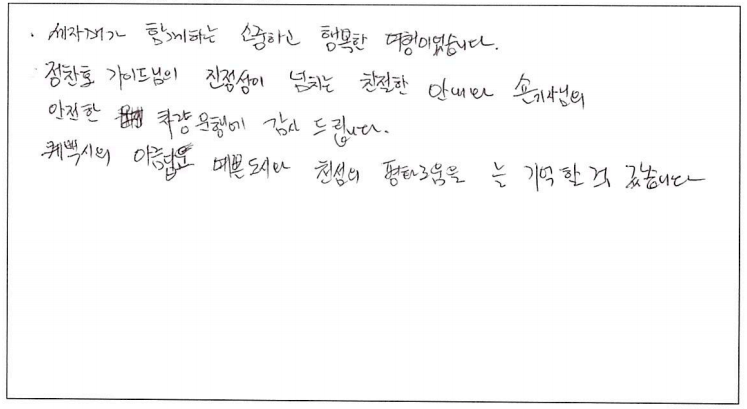 . 세자매가 함께하는 소중하고 행복한 여행이였습니다.
정찬호 가이드님의 진정성이 넘치는 친절한 안내와 손기사님의
안전한 차량운행에 감사 드립니다.
퀘백시의 아름답운 예쁜도시와 천섬의 평화로움을 늘 기억할것 같습니다